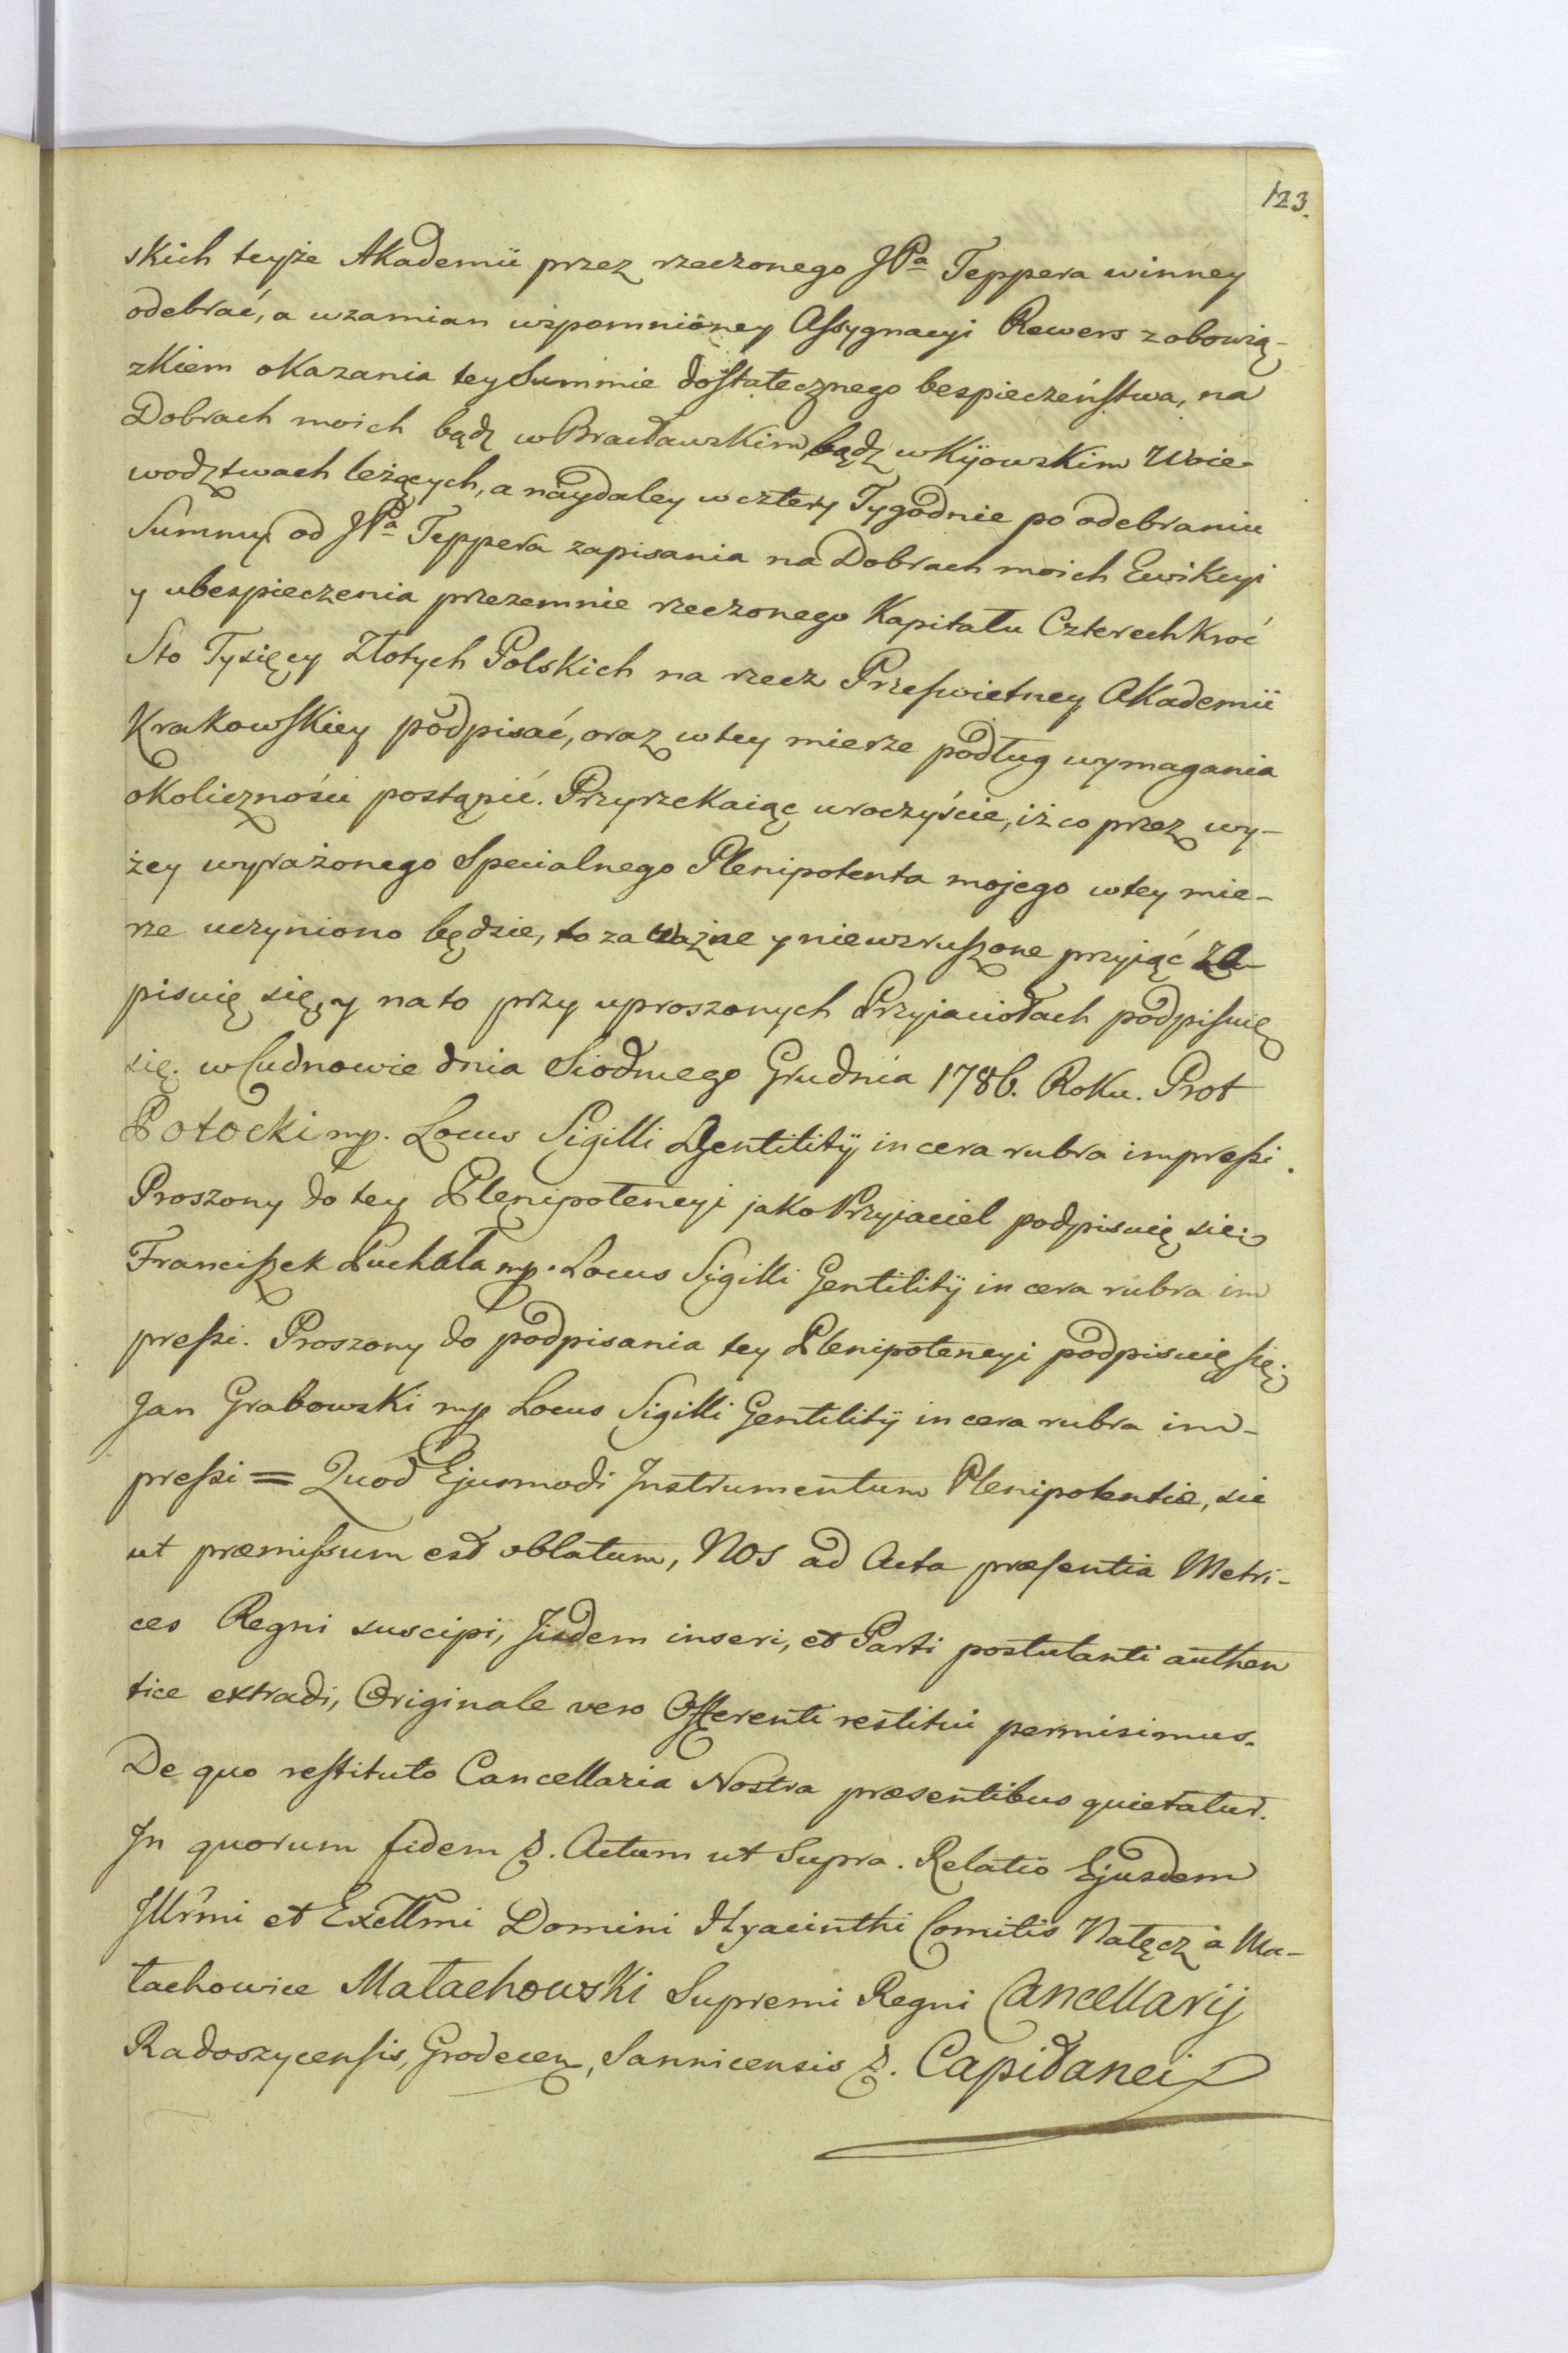 123.
skich teyże Akademii przez rzeczonego JPa Teppera winney
odebrać, a wzamian wspomnioney Assygnacyi Rewers z obowią-
zkiem okazania tey Summie dostatecznego bespieczeństwa, na
Dobrach moich bądz w Bracławskim, bądz w Kijowskim Woie-
wodztwach leżących, a naydaley w cztery Tygodnie po odebraniu
Summy od JPa Teppera zapisania na Dobrach moich Ewikcyi
y ubespieczenia przezemnie rzeczonego Kapitału Czterechkroć
Sto Tysięcy Złotych Polskich na rzecz Prześwietney Akademii
Krakowskiey podpisać, oraz w tey mierze podług wymagania
okoliczności postąpić. Przyrzekaiąc uroczyście, iż co przez wy-
żey wyrażonego Specialnego Plenipotenta mojego w tey mie-
rze uczyniono będzie, to za ważne y niewzruszone przyjąć za-
pisuię się, y na to przy uproszonych Przyjaciołach podpisuię
się. w Cudnowie dnia Siodmego Grudnia 1786. Roku. Prot
Potocki mp. Locus Sigilli Gentilitÿ in cera rubra impressi.
Proszony do tey Plenipotencyi jako Przyjaciel podpisuię się.
Franciszek Puchała mp. Locus Sigilli Gentilitÿ in cera rubra im
pressi. Proszony do podpisania tey Plenipotencyi podpisuię się.
Jan Grabowski mp Locus Sigilli Gentilitÿ in cera rubra im-
pressi = Quod Ejusmodi Instrumentum Plenipotentiæ, sic
ut præmissum est oblatum, Nos ad Acta præsentia Metri-
ces Regni suscipi, Iisdem inseri, et Parti postulanti authen
tice extradi, Originale vero Offerenti restitui permisimus.
De quo restituto Cancellaria Nostra præsentibus quietatur.
In quorum fidem &. Actum ut Supra. Relatio Ejusdem
Illrmi et Excllmi Domini Hyacinthi Comitis Nałęcz à Ma-
łachowice Małachowski Supremi Regni Cancellarij
Radoszycensis, Grodecen, Sannicensis &. Capitanei